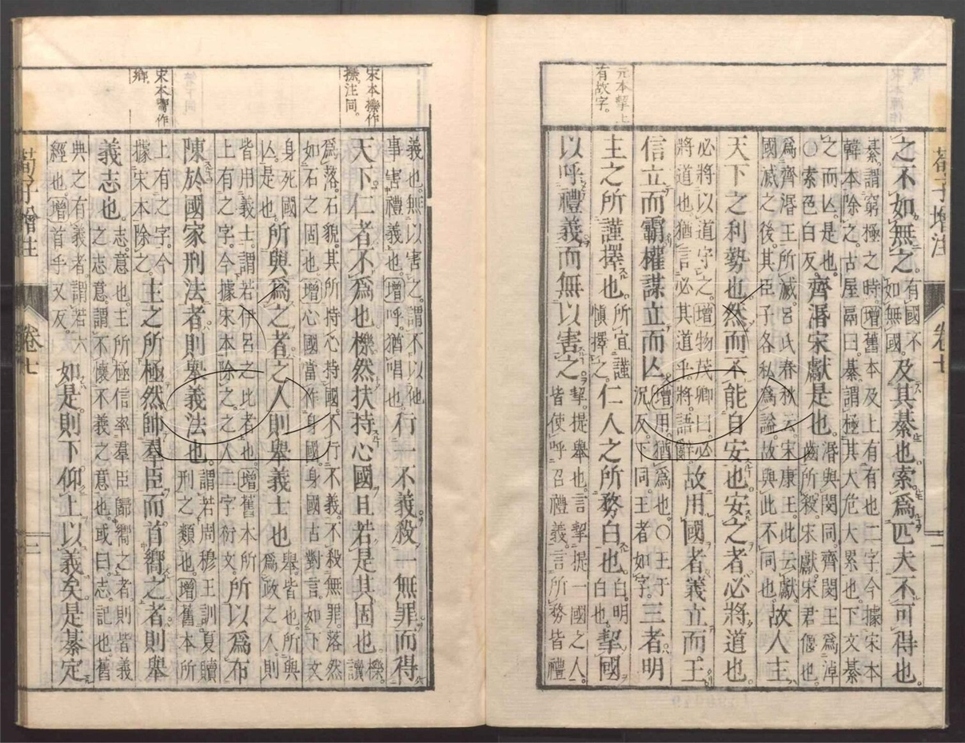 荀子增注
卷七
元本挈上
有故字。
之不如無之。
有國不
如無國
及其綦也索爲匹夫不可得也
綦謂窮極之時增舊本及上有有也二字今據宋本
韓本除之。古屋鬲曰綦謂極其大危大累也下文綦
之而亾是也。
〇索色白反。
齊湣宋獻是也。
湣與閔同齊閔王爲淖
齒所殺宋獻宋君偃也
爲齊湣王所滅呂氏春秋云宋康王。此云獻
國滅之後。其臣子各私爲謚。故與此不同也
故人主
天下之利勢也然而不能自安也安之者必將道也。
必將以道守之。增物茂卿曰必
將道也猶言必其道乎將語辭
故用國者義立而王
信立而霸權謀立而亾
增用猶爲也。〇王于
況反。下同。王者如字
三者明
主之所謹擇也。
所宜謹
愼擇之。
仁人之所務白也。
白明
白也。
挈國
以呼禮義而無以害之。
挈提舉也言挈提一國之人。
皆使呼召禮義言所務皆禮
宋本擽作
𢸬注同。
宋本嚮作
鄉。
義也。無以害之。謂不以他
事害禮義也增呼猶唱也
行一不義殺一無罪而得
天下仁者不爲也擽然扶持心國且若是其固也
擽讀
爲落石貌其所持心持國不行不義不殺無罪落然
如石之固也增心國當作身國。身國古對言如下文
身死國
亾是也
所與爲之者之人則舉義士也
舉皆也所與
爲政之人則
皆用義士。謂若伊呂之比者也增舊本所
上有之字。今據宋本除之。之人二字衍文。
所以爲布
陳於國家刑法者則舉義法也
謂若周穆王訓夏贖
刑之類也增舊本所
上有之字。今
據宋本除之。
主之所極然帥羣臣而首嚮之者則舉
義志也。
志意也。主所極信率羣臣歸嚮之者則皆義
之志意謂不懷不義之意也或曰志記也舊
典之有義者謂若六
經也增首乎又反。
如是則下仰上以義矣是綦定
荀子增注
卷七
二